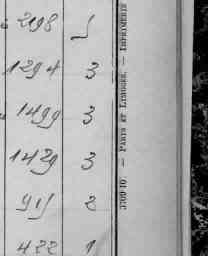 298
1294 3
1499 3
1429 3
915 2
422 1
— PARIS ET LIMOGES. — IMPRIMERIE